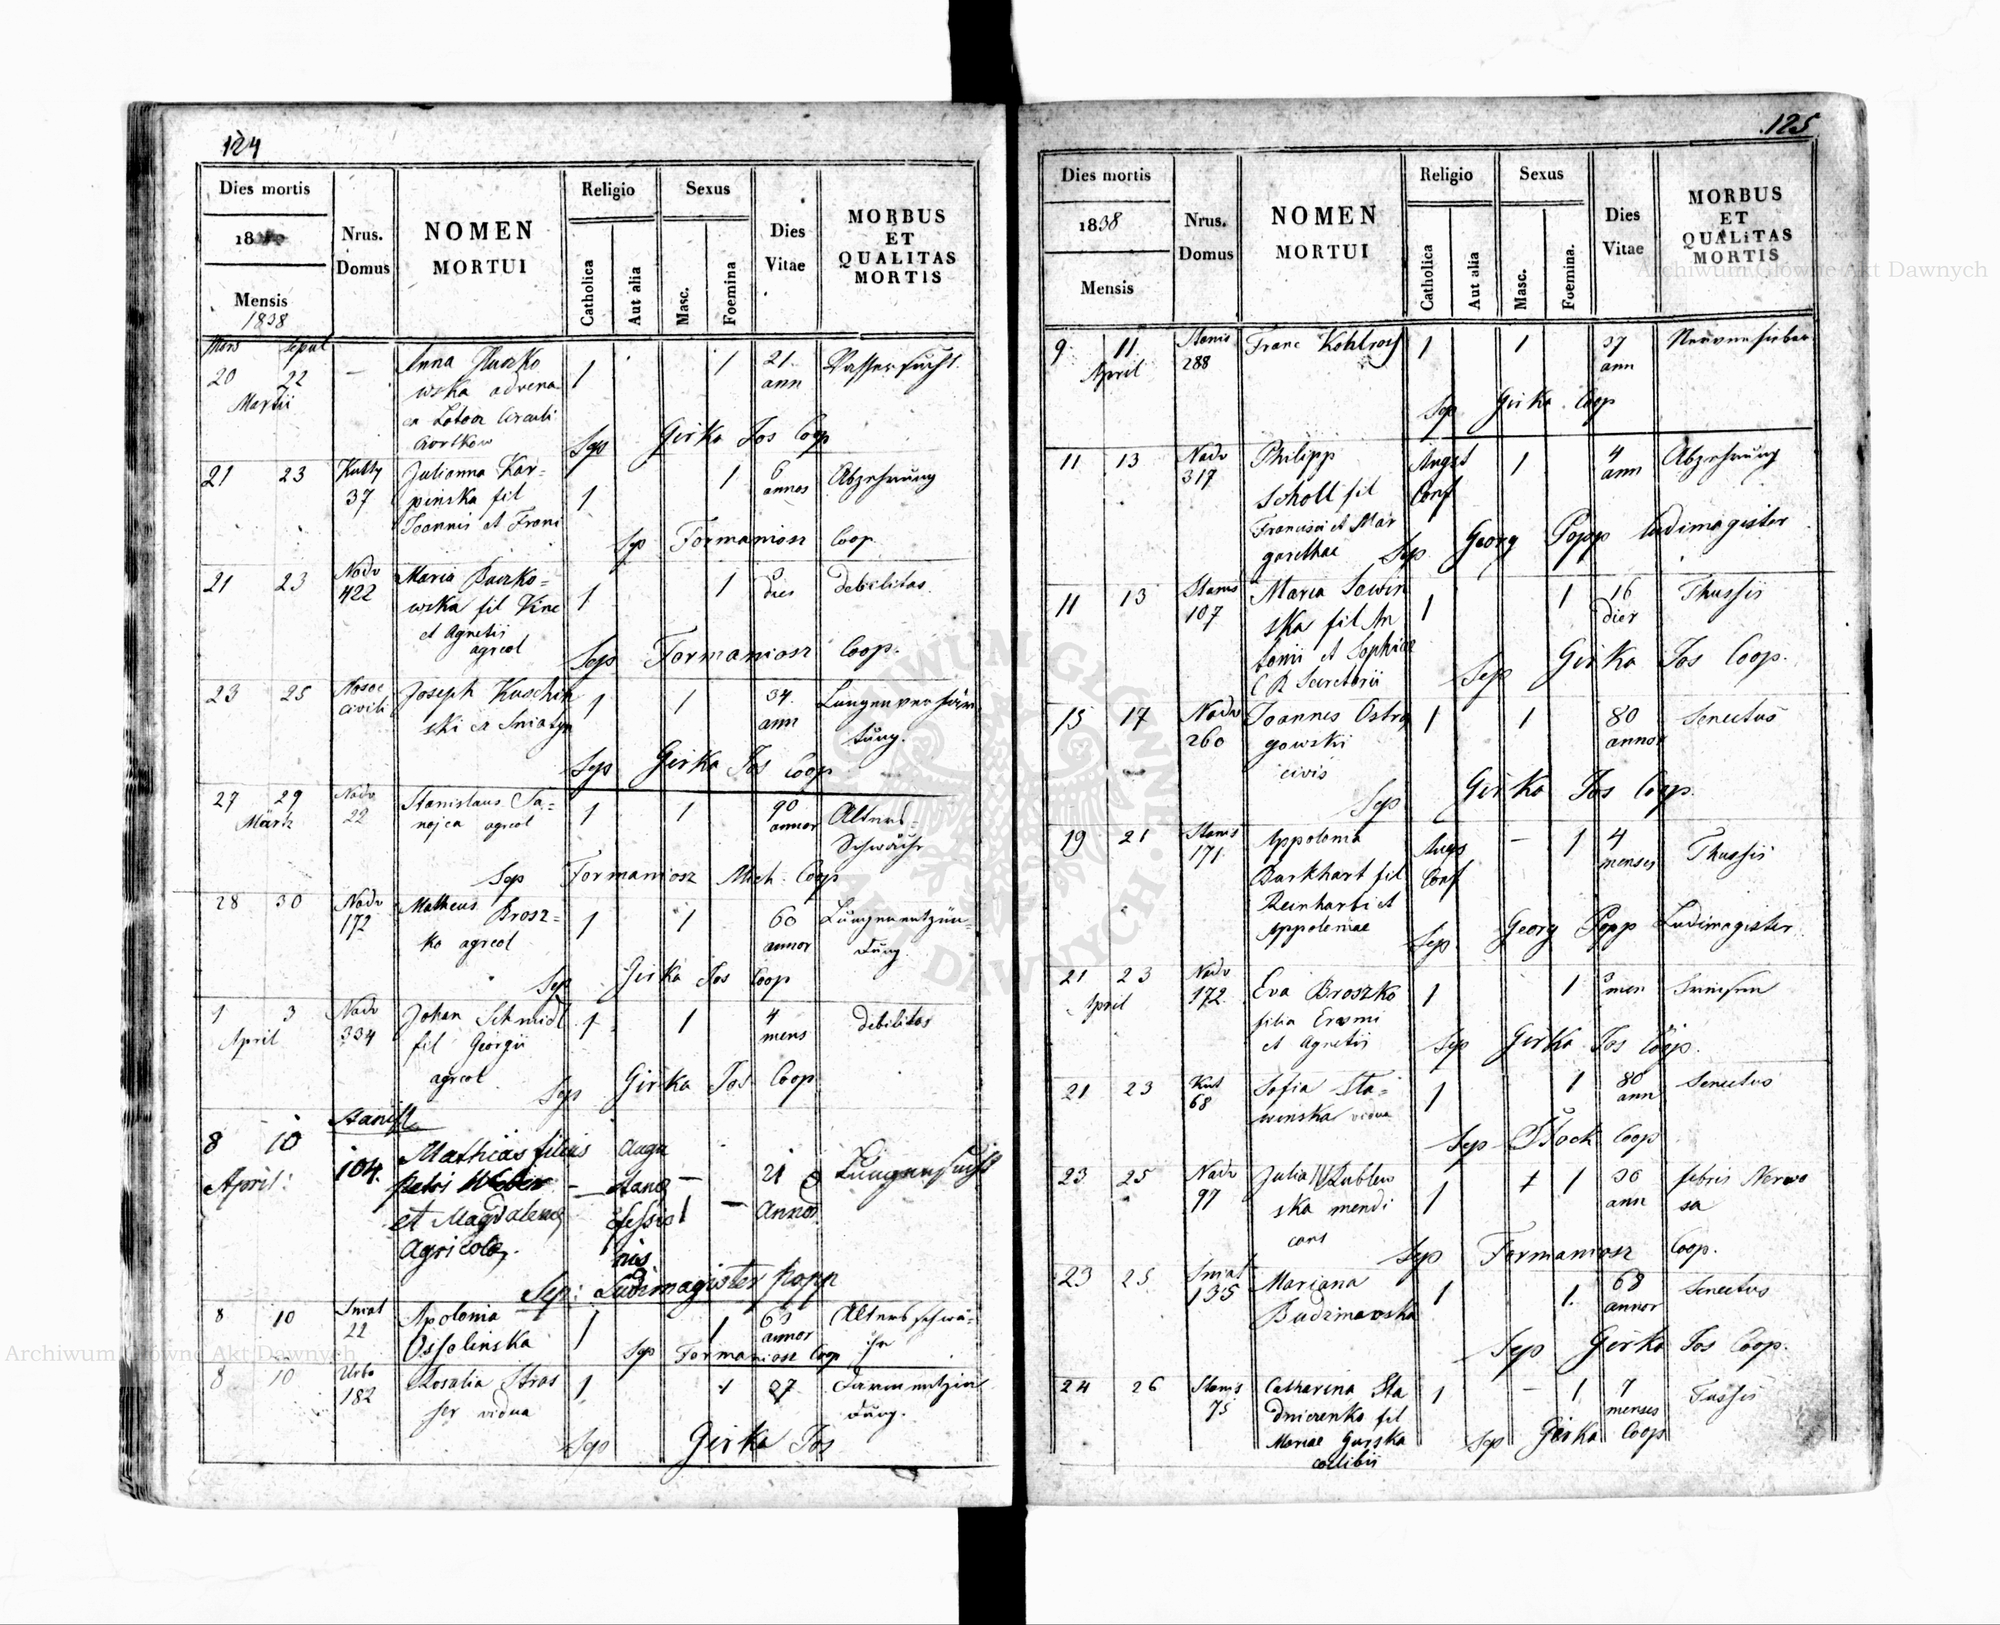 124
Dies mortis
18
Mensis
1838
Nrus.
Domus
NOMEN
MORTUI
Religio
Catholica
Aut alia
Sexus
Masc.
Foemina
Dies
Vitae
MORBUS
ET
QUALITAS
MORTIS
Mors sepul
20 22
Martii
—
Anna
wska advena
ex Circuli
Czortkow
1
1
21
ann
Wassersucht.
Sep Girka Jos Coop
21 23
Kutty
37
Julianna Kar=
pinska fil
Joannis et Franc
1
1
6
annos
Abzehrung
Sep Formaniosz Coop
21 23
Nadv
422
Maria Buczko=
wska fil Vinc
et Agnetis
agrcol
1
1
3
dies
debilitas
Sep Formaniosz Coop.
23 25
civili
Joseph
ski ex Sniatyn
1
1
34
ann
Lungenverhär
tung.
Sep Girka Jos Coop
27 29
Märtz
Nadv
22
Stanislaus Ta=
nojca agrcol
1
1
90
annor
Alters=
Schwäche
Sep Formaniosz Mich. Coop
28 30
Nadv
172
Matheus Brosz=
ko agrcol
1
1
60
annor
Lungenentzün=
dung
Sep Girka Jos Coop
1 3
April
Nadv
334
Johan Schmidt
fil Georgii
agrcol
1
1
4
mens
debilitas
Sep Girka Jos Coop
8 10
April:
Stanisl.
104.
Mathias filius
Petri Weber
et Magdalena
Agricola.
Augu
stane
Cofessio
nis
1
—
21
Annor
Lungensucht
Sep: Ludimagister Popp
8 10
Sniat
22
Apolonia
Ossolinska
1
1
63
annor
Altersschwä=
che
Sep Formaniosz Coop
8 10
Urbs
182
Rosalia Stras
ser vidua
1
1
27
Darmentzün
dung.
Sep Girka Jos
125
Dies mortis
1838
Mensis
Nrus.
Domus
NOMEN
MORTUI
Religio
Catholica
Aut alia
Sexus
Masc.
Foemina.
Dies
Vitae
MORBUS
ET
QUALITAS
MORTIS
9 11
April
Stanis
288
Franc Kohlros
1
1
37
ann
Nervenfieber
Sep Girka Coop
11 13
Nadv
317
Philipp
Scholl fil
Francisci et Mar
garethae
Augst
Conf
1
4
ann
Abzehrung
Sep Georg Popp ludimagister
11 13
Stanis
107
Maria Sowin
ska fil An
tonii et Sophiae
C R Secretarii
1
1
16
dier
Thussis
Sep Girka Jos Coop.
15 17
Nadv
260
Joannes Ostro
gowski
civis
1
1
80
annor
Senectus
Sep Girka Jos Coop
19 21
Stanis
171
Appolonia
Burkhart fil
Reinharti et
Appoleniae
Augs
Conf
—
1
4
menses
Thussis
Sep Georg Popp Ludimagister
21 23
April
Nadv
172
Eva Broszko
filia Erasmi
et Agnetis
1
1
3
men
Sep Girka Jos Coop.
21 23
Kut
68
Sofia Sta=
winska vidua
1
1
80
ann
Senectus
Sep Coop
23 25
Nadv
97
Julia Lublew
ska mendi
cans
1
1
36
ann
febris Nervo
sa
Sep Formaniosz Coop.
23 25
Sniat
135
Mariana
Budzinowska
1
1.
68
annor
Senectus
Sep Girka Jos Coop.
24 26
Stanis
75
Catharina Sta
dniczenko fil
Mariae Gurska
coelibis
1
—
1
7
menses
Tussis
Sep Girka Coop
Archiwum Główne Akt Dawnych
Archiwum Główne Akt Dawnych
ARCHIWUM GŁÓWNE AKT DAWNYCH